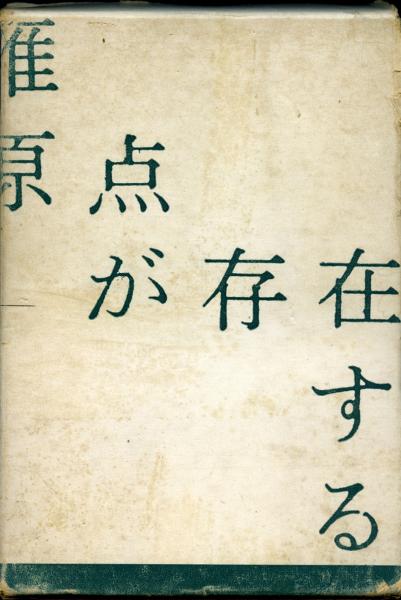 雁原
点が
存
在する